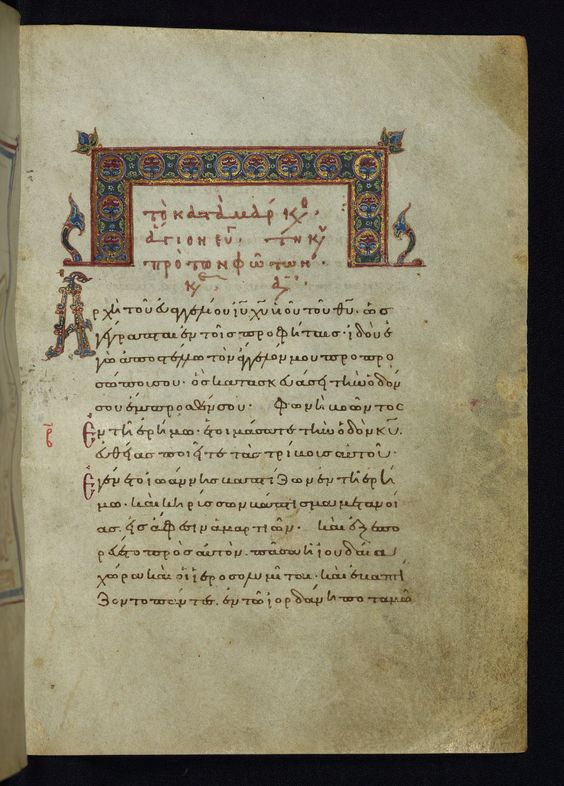 τὸ κατὰ μάρκον
ἅγιον εὐ· τῆ κυ
πρὸ τῶν φώτων·
Ἀρχὴ τοῦ ἐυαγγελίου ιυ χυ υιοῦ τοῦ θυ· ὡς
γέγραπται ἐν τοῖς προφήταις· ἰδοὺ ἐ
γὼ ἀποστέλλω τὸν ἄγγελόν μου πρὸ προ
σώπου σου· ὃς κατασκευάσει τὴν ὁδόν
σου ἔμπροσθέν σου· Φωνὴ βοῶντος
ἐν τῆ ἐρήμω· ἑτοιμάσατε τὴν ὁδὸν κυ·
ἐυθείας ποιεῖτε τὰς τρίβους αὐτοῦ·
Ἐγένετο ἰωάννης βαπτίζων ἐν τῆ ἐρή
μω· καὶ κηρύσσων βάπτισμα μετανοί
ας· εἰς ἄφεσιν ἁμαρτιῶν· καὶ ἐξεπο
ρεύετο πρὸς αὐτὸν· πᾶσα ἡ ἰουδαία
χώρα καὶ οἱ ἱεροσολυμῖται· καὶ ἐβαπτί
ζοντο πάντες· ἐν τῶ ἰορδάνη ποταμῶ